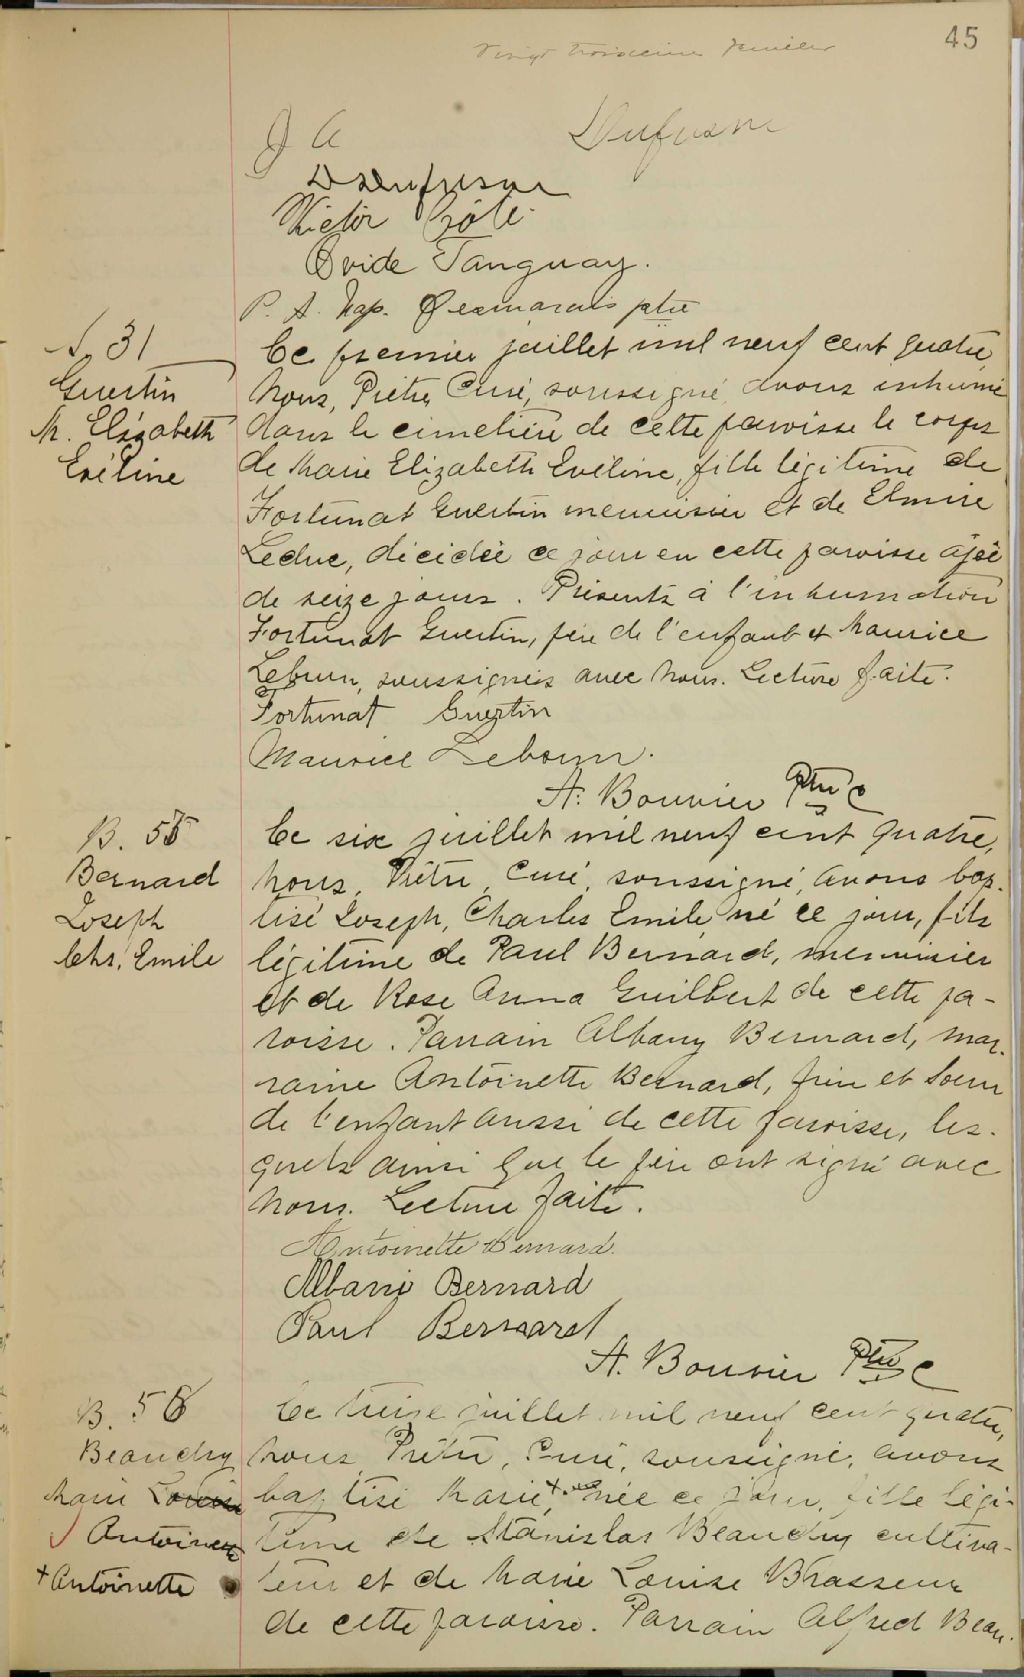 45
vingt troisième
J A Dufresne
Victor Côté
Ovide Tanguay.
P. A. Nap. Desmarais ptre
S 31
Guertin
M. Elizabeth
Eveline
Ce premier juillet mil neuf cent quatre,
Nous, Prêtre, Curé, soussigné, avons inhumé
dans le cimetière de cette paroisse le corps
de Marie Elizabeth Eveline, fille légitime de
Fortunat Guertin menuisier et de Elmire
Leduc, décédée ce jour en cette paroisse agée
de seize jours. Présents à l'inhumation
Fortunat Guertin, père de l'enfant & Maurice
Lebrun, soussignés avec nous. Lecture faite.
Fortunat Guertin
Maurice Lebrun.
A. Bouvier Ptre C
B. 55
Bernard
Joseph
Chs. Emile
Ce six juillet mil neuf cent quatre,
Nous, Prêtre, Curé, soussigné, avons bap-
tisé Joseph, Charles Emile, né ce jour, fils
légitime de Paul Bernard, menuisier
et de Rose Anna Guilbert de cette pa-
roisse. Parrain Albany Bernard, mar-
raine Antoinette Bernard, frère et soeur
de l'enfant aussi de cette paroisse, les-
quels ainsi que le père ont signé avec
nous. Lecture faite.
Antoinette Bernard.
Albani Bernard
Paul Bernard
A. Bouvier Ptre C
B. 56
Beaudry
Marie Louise
Antoinette
+ Antoinette
Ce treize juillet mil neuf cent quatre,
nous Prêtre, Curé, soussigné, avons
baptisé Marie + née ce jour, fille légi-
time de Stanislas Beaudry cultiva-
teur et de Marie Louise Brasseur
de cette paroisse. Parrain Alfred Beau-